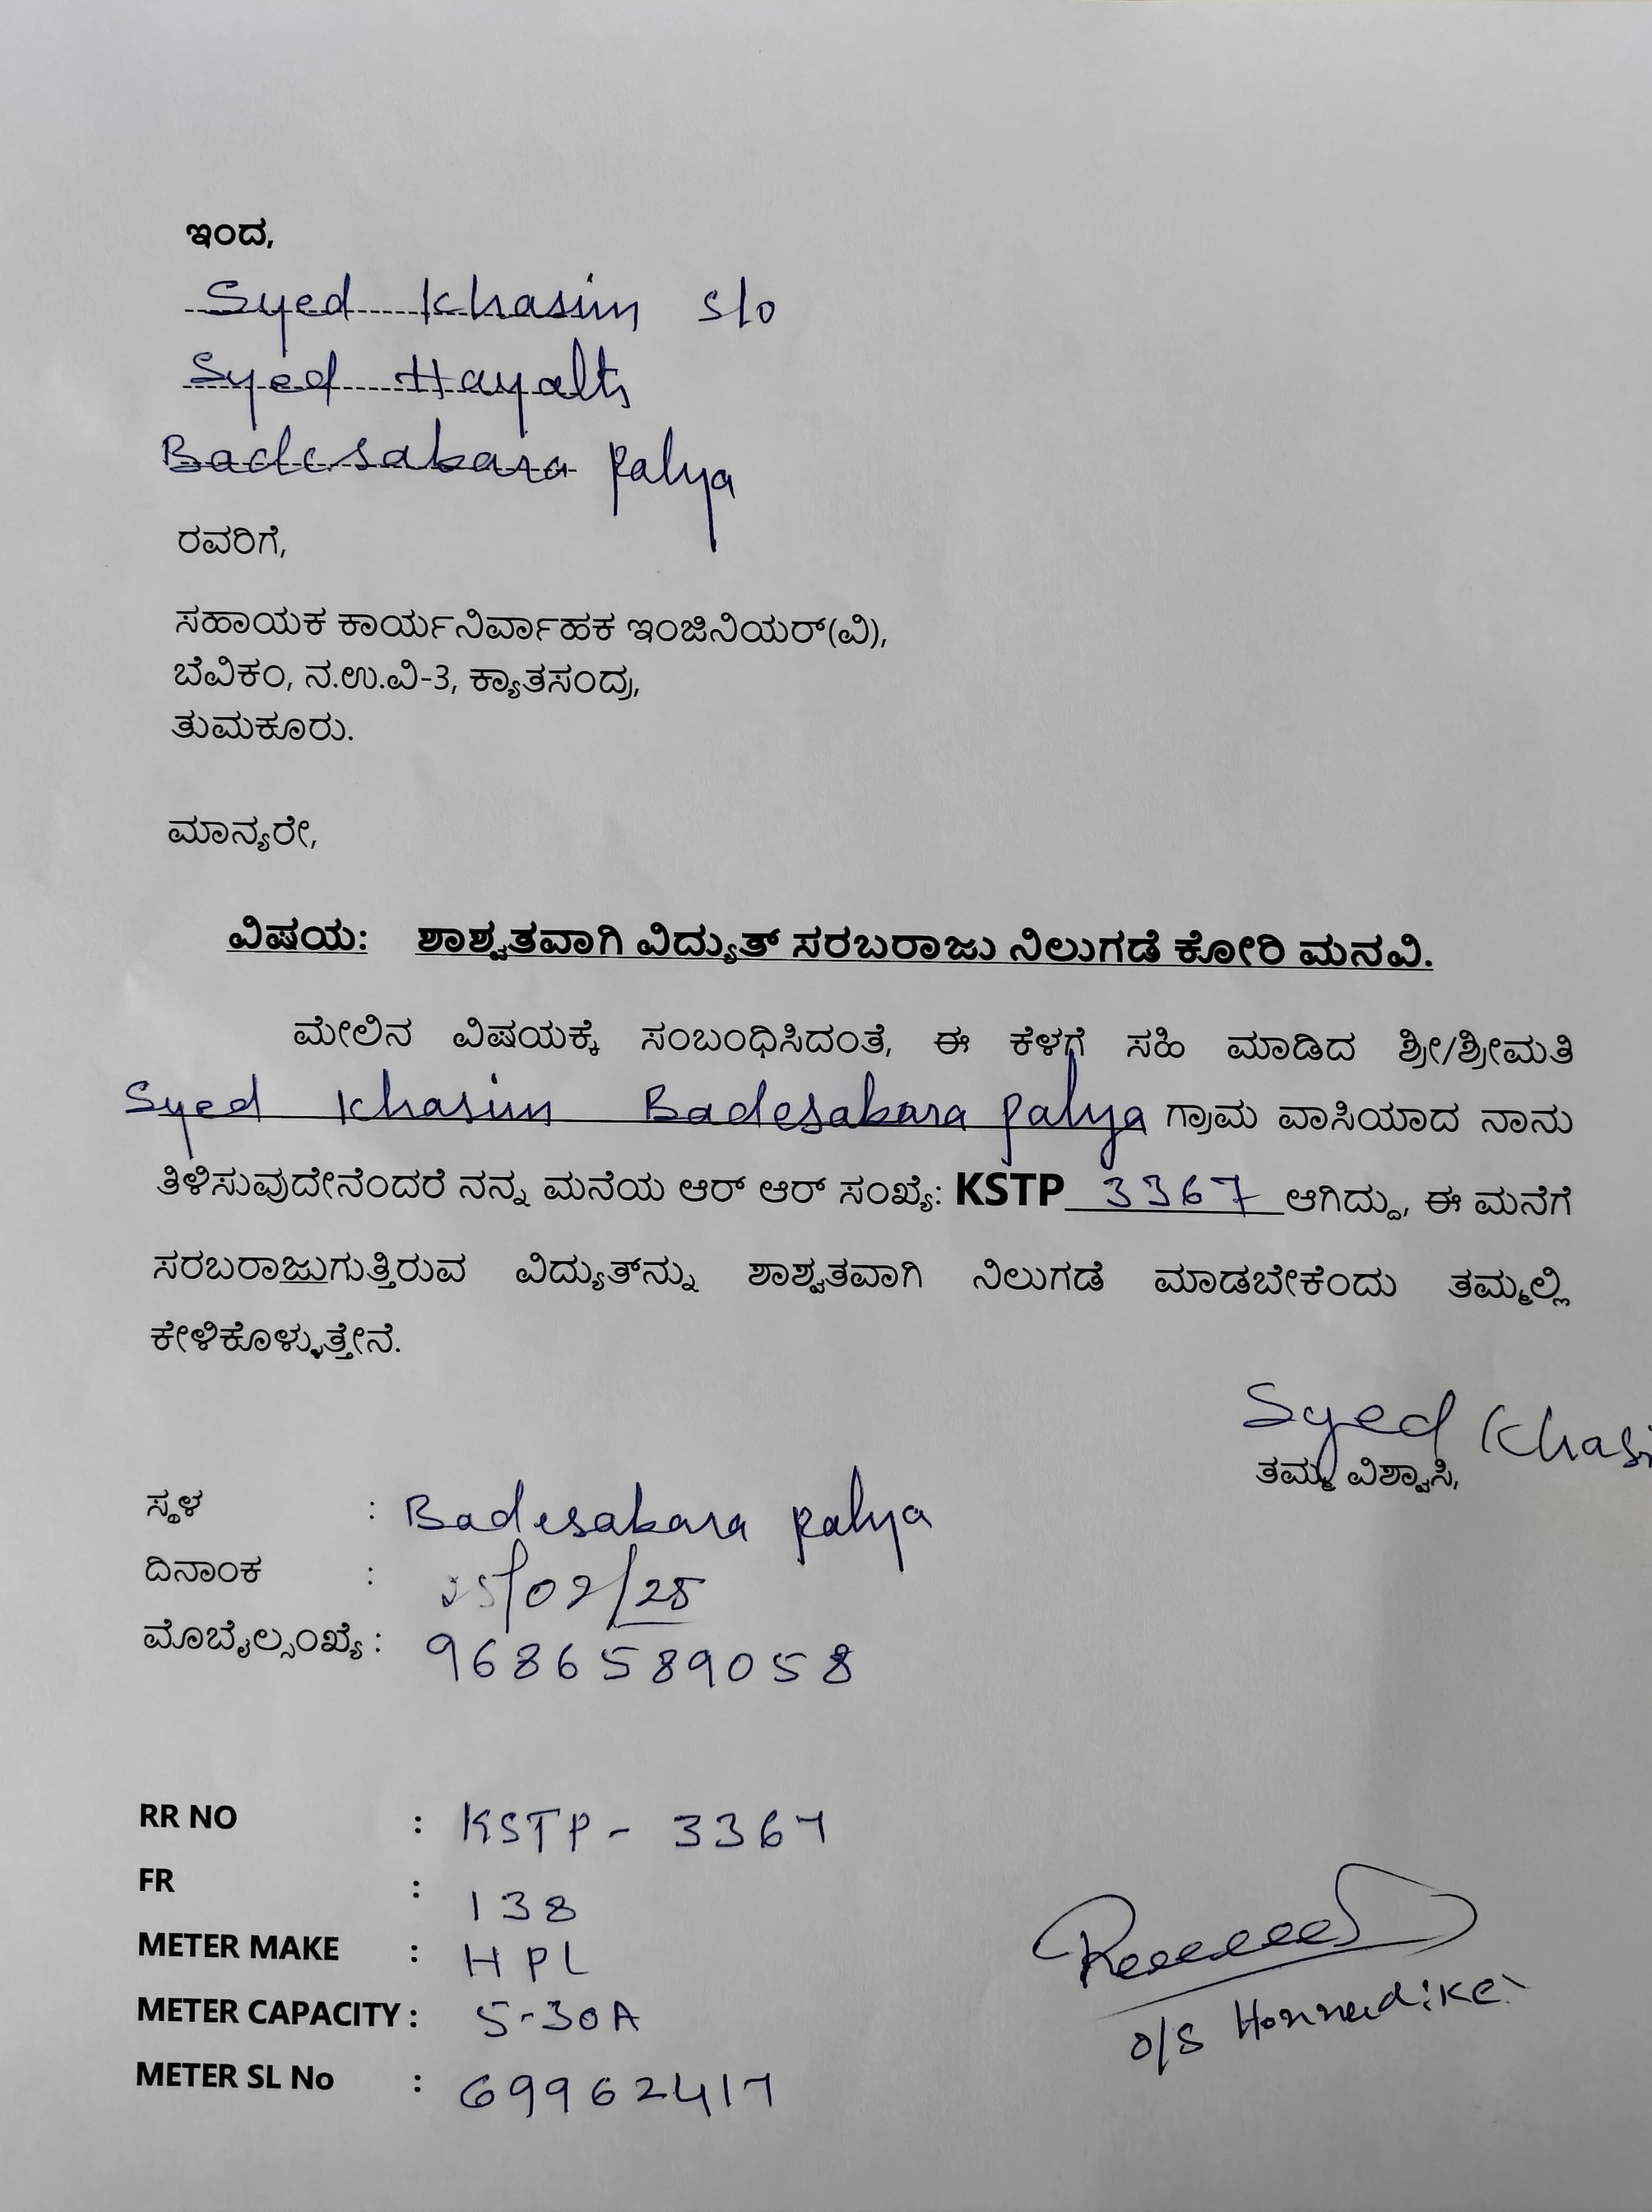 ಇಂದ,
Syed Khasim S/o
Syed Hayath
Badesabara Palya
ರವರಿಗೆ,
ಸಹಾಯಕ ಕಾರ್ಯನಿರ್ವಾಹಕ ಇಂಜಿನಿಯರ್(ವಿ),
ಬೆವಿಕಂ, ನ.ಉ.ವಿ-3, ಕ್ಯಾತಸಂದ್ರ,
ತುಮಕೂರು.
ಮಾನ್ಯರೇ,
ವಿಷಯ: ಶಾಶ್ವತವಾಗಿ ವಿದ್ಯುತ್ ಸರಬರಾಜು ನಿಲುಗಡೆ ಕೋರಿ ಮನವಿ.
ಮೇಲಿನ ವಿಷಯಕ್ಕೆ ಸಂಬಂಧಿಸಿದಂತೆ, ಈ ಕೆಳಗೆ ಸಹಿ ಮಾಡಿದ ಶ್ರೀ/ಶ್ರೀಮತಿ
Syed Khasim Badesabara Palya ಗ್ರಾಮ ವಾಸಿಯಾದ ನಾನು
ತಿಳಿಸುವುದೇನೆಂದರೆ ನನ್ನ ಮನೆಯ ಆರ್ ಆರ್ ಸಂಖ್ಯೆ: KSTP 3367 ಆಗಿದ್ದು, ಈ ಮನೆಗೆ
ಸರಬರಾಜುಗುತ್ತಿರುವ ವಿದ್ಯುತ್‌ನ್ನು ಶಾಶ್ವತವಾಗಿ ನಿಲುಗಡೆ ಮಾಡಬೇಕೆಂದು ತಮ್ಮಲ್ಲಿ
ಕೇಳಿಕೊಳ್ಳುತ್ತೇನೆ.
Syed Khasi
ತಮ್ಮ ವಿಶ್ವಾಸಿ,
ಸ್ಥಳ : Badesabara Palya
ದಿನಾಂಕ : 25/02/25
ಮೊಬೈಲ್ಸಂಖ್ಯೆ : 9686589058
RR NO : KSTP - 3367
FR : 138
METER MAKE : HPL
METER CAPACITY : 5-30A
METER SL No : 69962417
O/S Honnudike